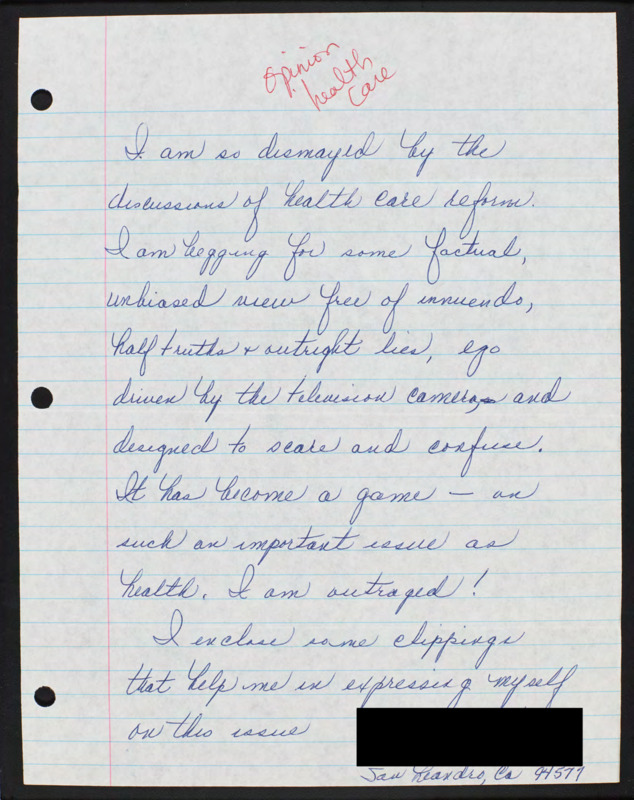 opinion
health
care
I am so dismayed by the
discussions of health care reform.
I am begging for some factual,
unbiased view free of innuendo,
half truths & outright lies, ego
driven by the television cameras and
designed to scare and confuse.
It has become a game — on
such an important issue as
health. I am outraged!
I enclose some clippings
that help me in expressing myself
on this issue
San Leandro, Ca 94577